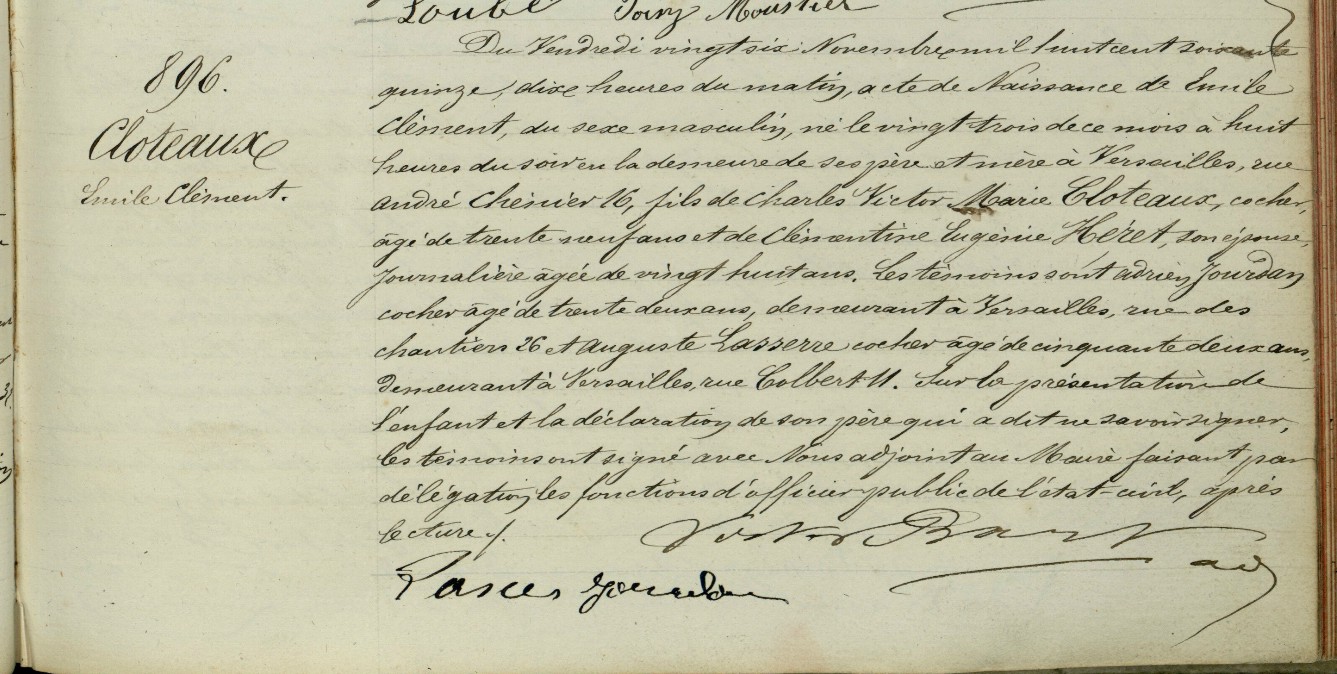 Loubé Tanz Moustier
896.
Cloteaux
Emile Clément.
Du Vendredi vingt six Novembre mil huit cent soixante
quinze, dix heures du matin, acte de Naissance de Emile
Clément, du sexe masculin, né le vingt trois de ce mois à huit
heures du soir en la demeure de ses père et mère à Versailles, rue
André Chénier 16, fils de Charles Victor Marie Cloteaux, cocher,
âgé de trente neuf ans et de Clémentine Eugénie Héret, son épouse,
Journalière âgée de vingt huit ans. Les témoins sont Adrien Jourdan
cocher âgé de trente deux ans, demeurant à Versailles, rue des
chantiers 26 et Auguste Lasserre cocher âgé de cinquante deux ans,
demeurant à Versailles, rue Colbert 11. Sur la présentation de
l'enfant et la déclaration de son père qui a dit ne savoir signer,
les témoins ont signé avec Nous adjoint au Maire faisant par
délégation les fonctions d'officier public de l'état-civil, après
lecture ./.
Victor Bart
ad
Jourdan